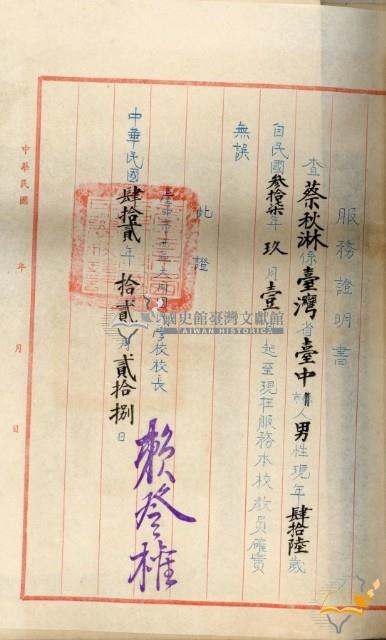 服務證明書
查蔡秋淋係臺灣省臺中縣人男性現年肆拾陸歲
自民國參拾柒年玖月壹日起至現在服務本校教員確實
無誤
此證
學校校長
賴登權
中華民國肆拾貳年拾貳月貳拾捌日
中華民國 年 月 日
國史館臺灣文獻館
TAIWAN HISTORICA